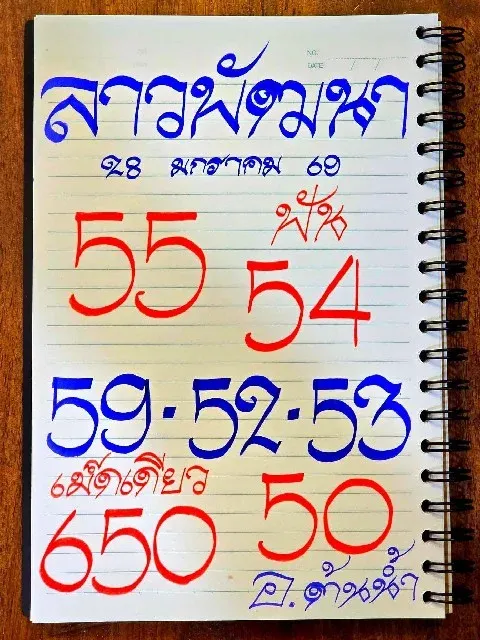 NO.
DATE
ลาวพัฒนา
28 มกราคม 69
55
ฟัน
54
59·52·53
เม็ดเดียว
650
50
อ.ต้นน้ำ